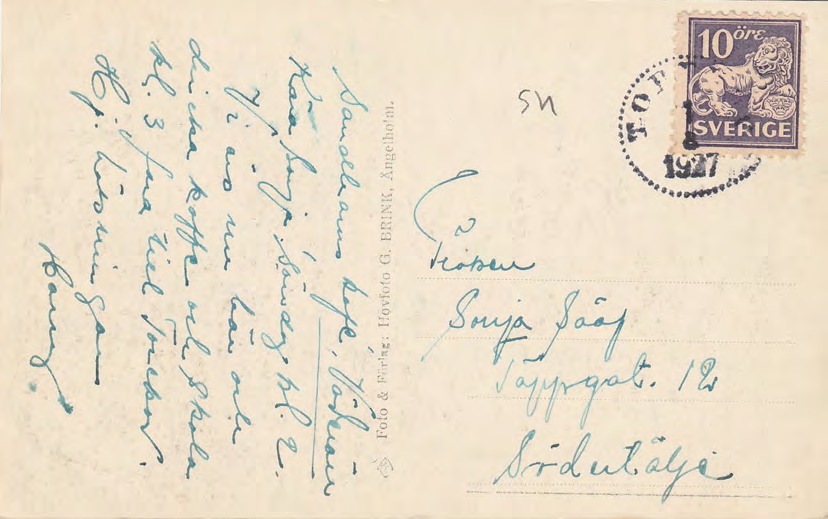 Sandhamns kafé, Väderön
Kära Sonja. Söndag kl. 2.
Vi äro nu här och
dricka kaffe och skola
kl. 3 fara till Torekov.
Hj. hälsningar
Foto & Förlag: Hovfoto G. BRINK, Ängelholm.
SN
10 öre
SVERIGE
1
8
1927
Fröken
Sonja Sööf
Täppgat. 12
Södertälje